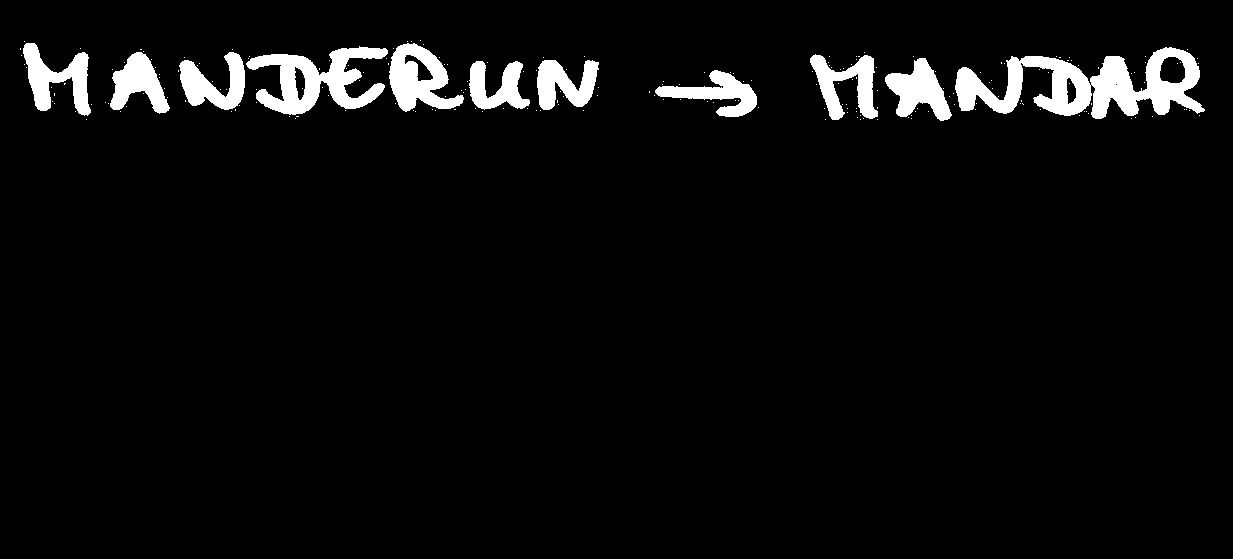 MANDERUN → MANDAR